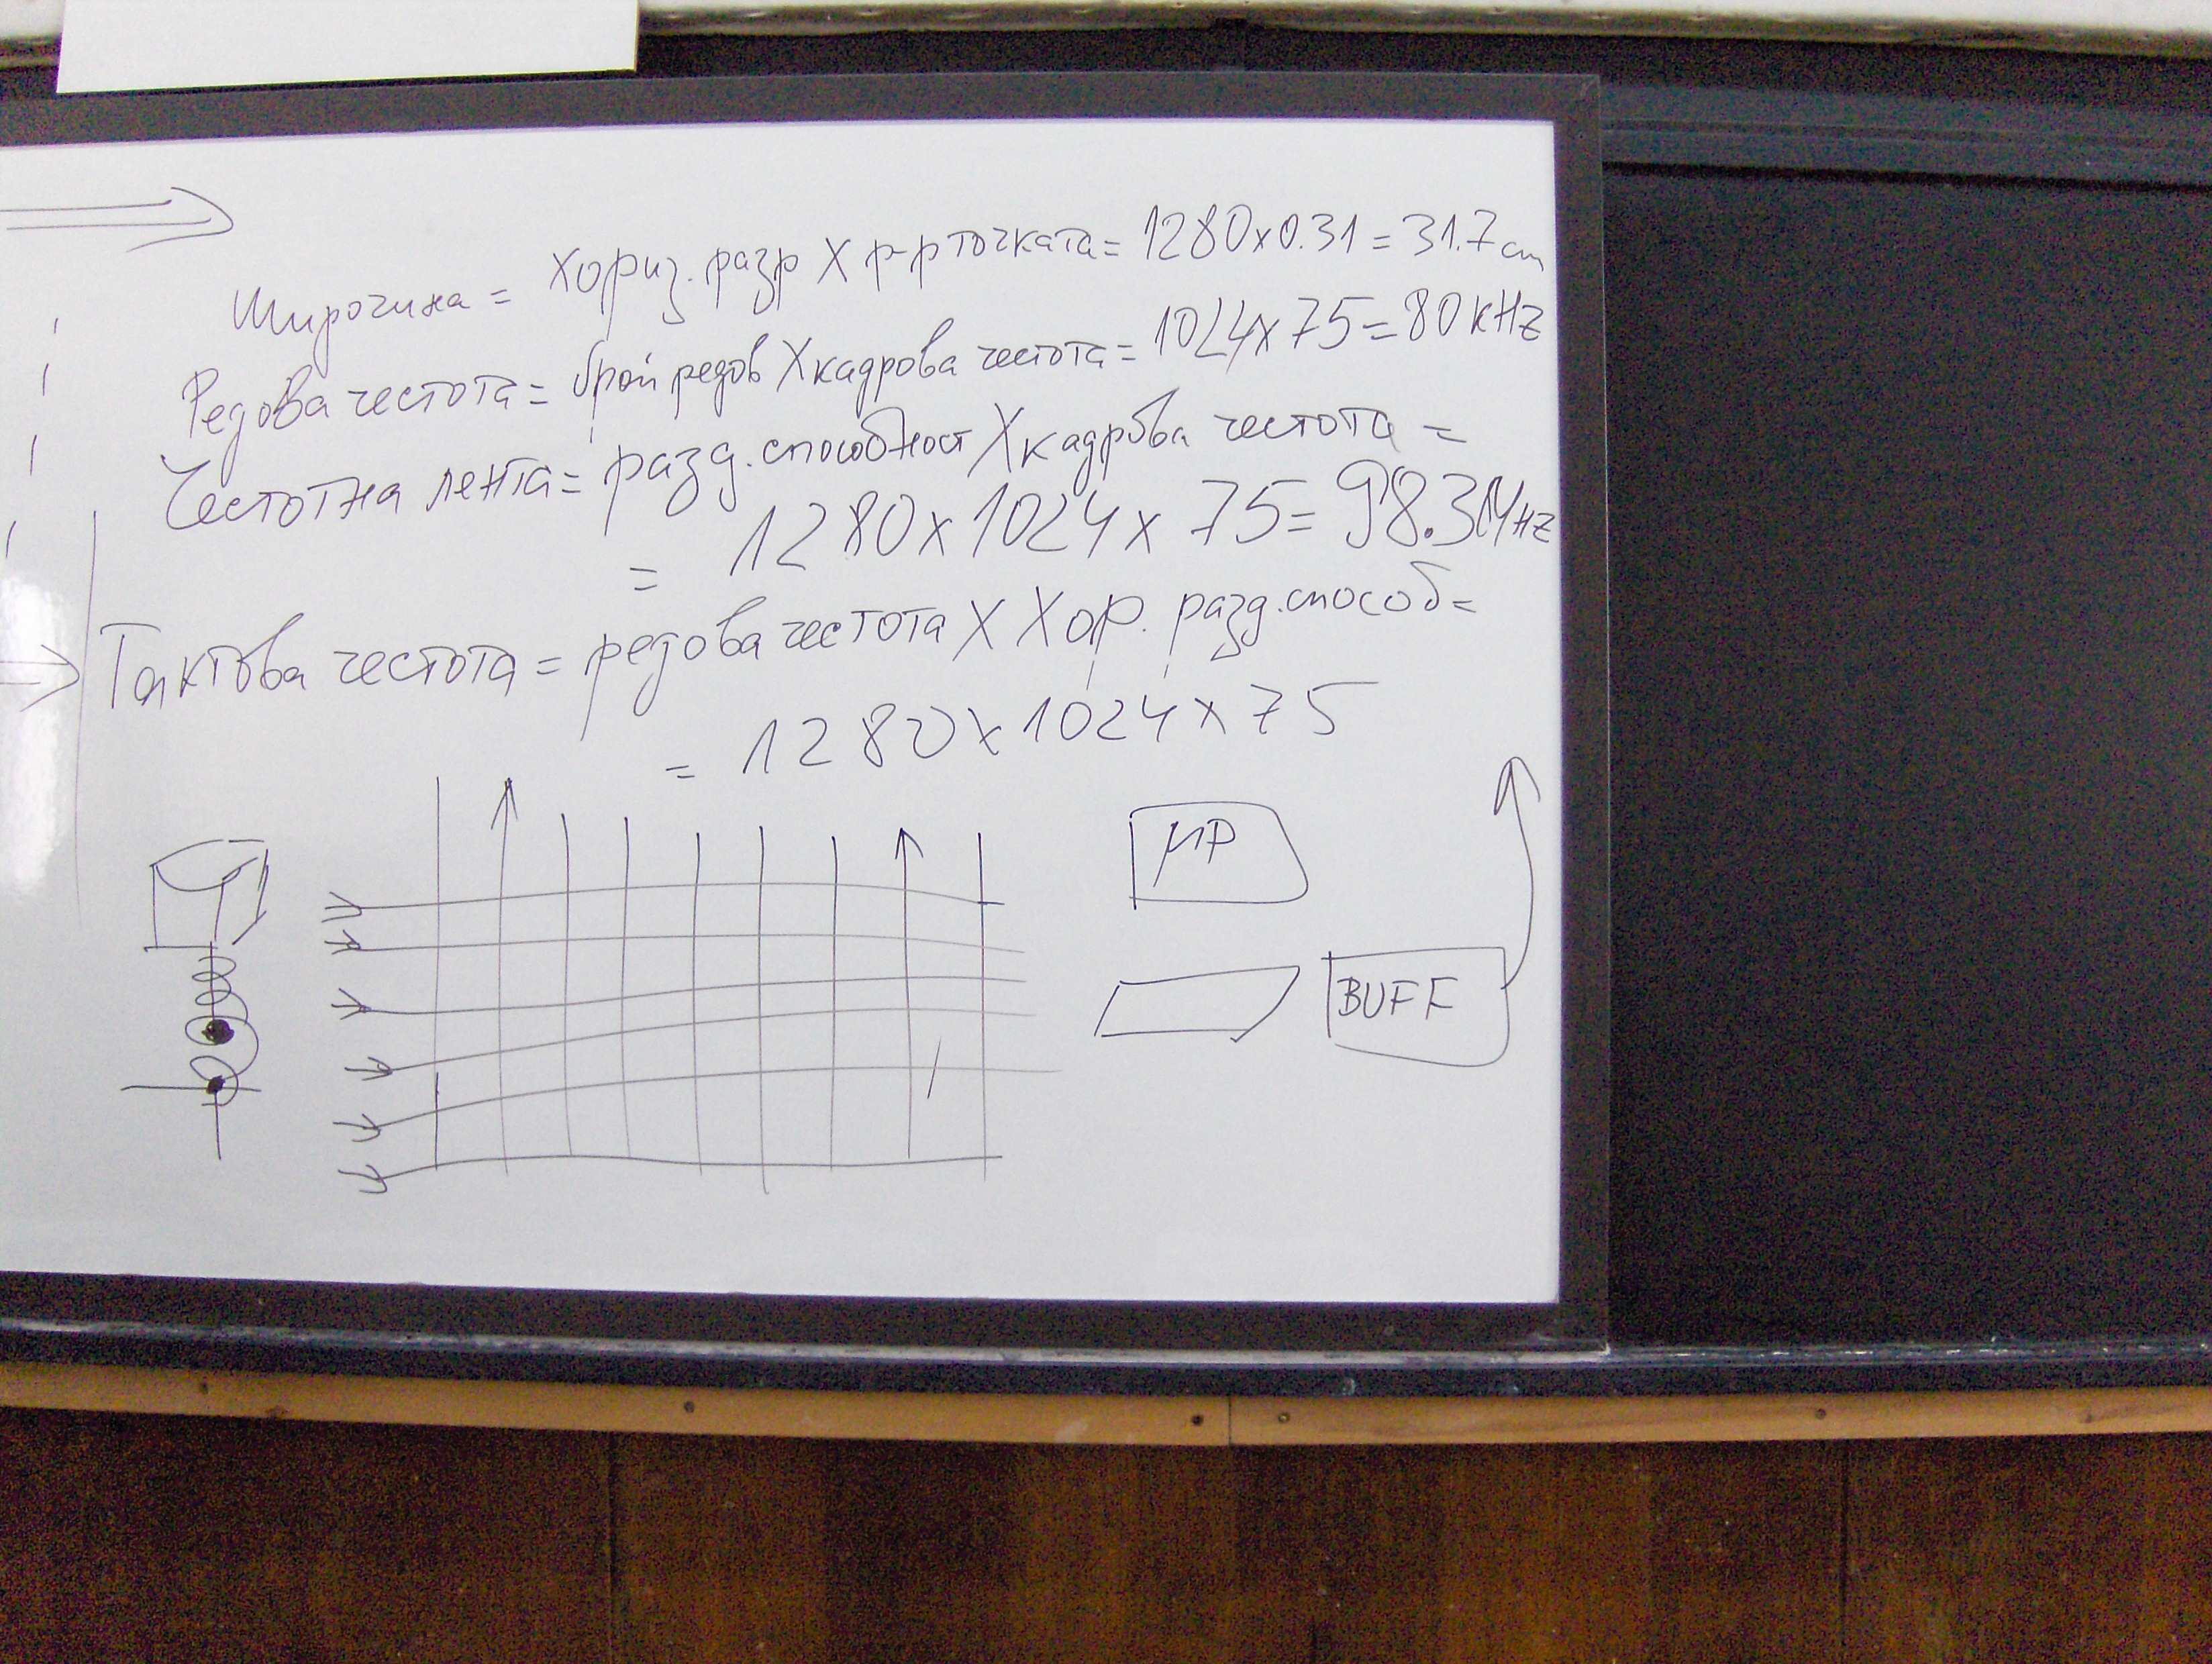 Широчина = хориз. разр X р-р точката = 1280x0.31 = 31.7 cm
Редова честота = брой редов X кадрова честота = 1024x75=80 kHz
Честотна лента = разд. способност X кадрова честота =
= 1280x1024x75=98.3MHz
Тактова честота = редова честота X Хор. разд. способ =
= 1280x1024x75
μP
BUFF